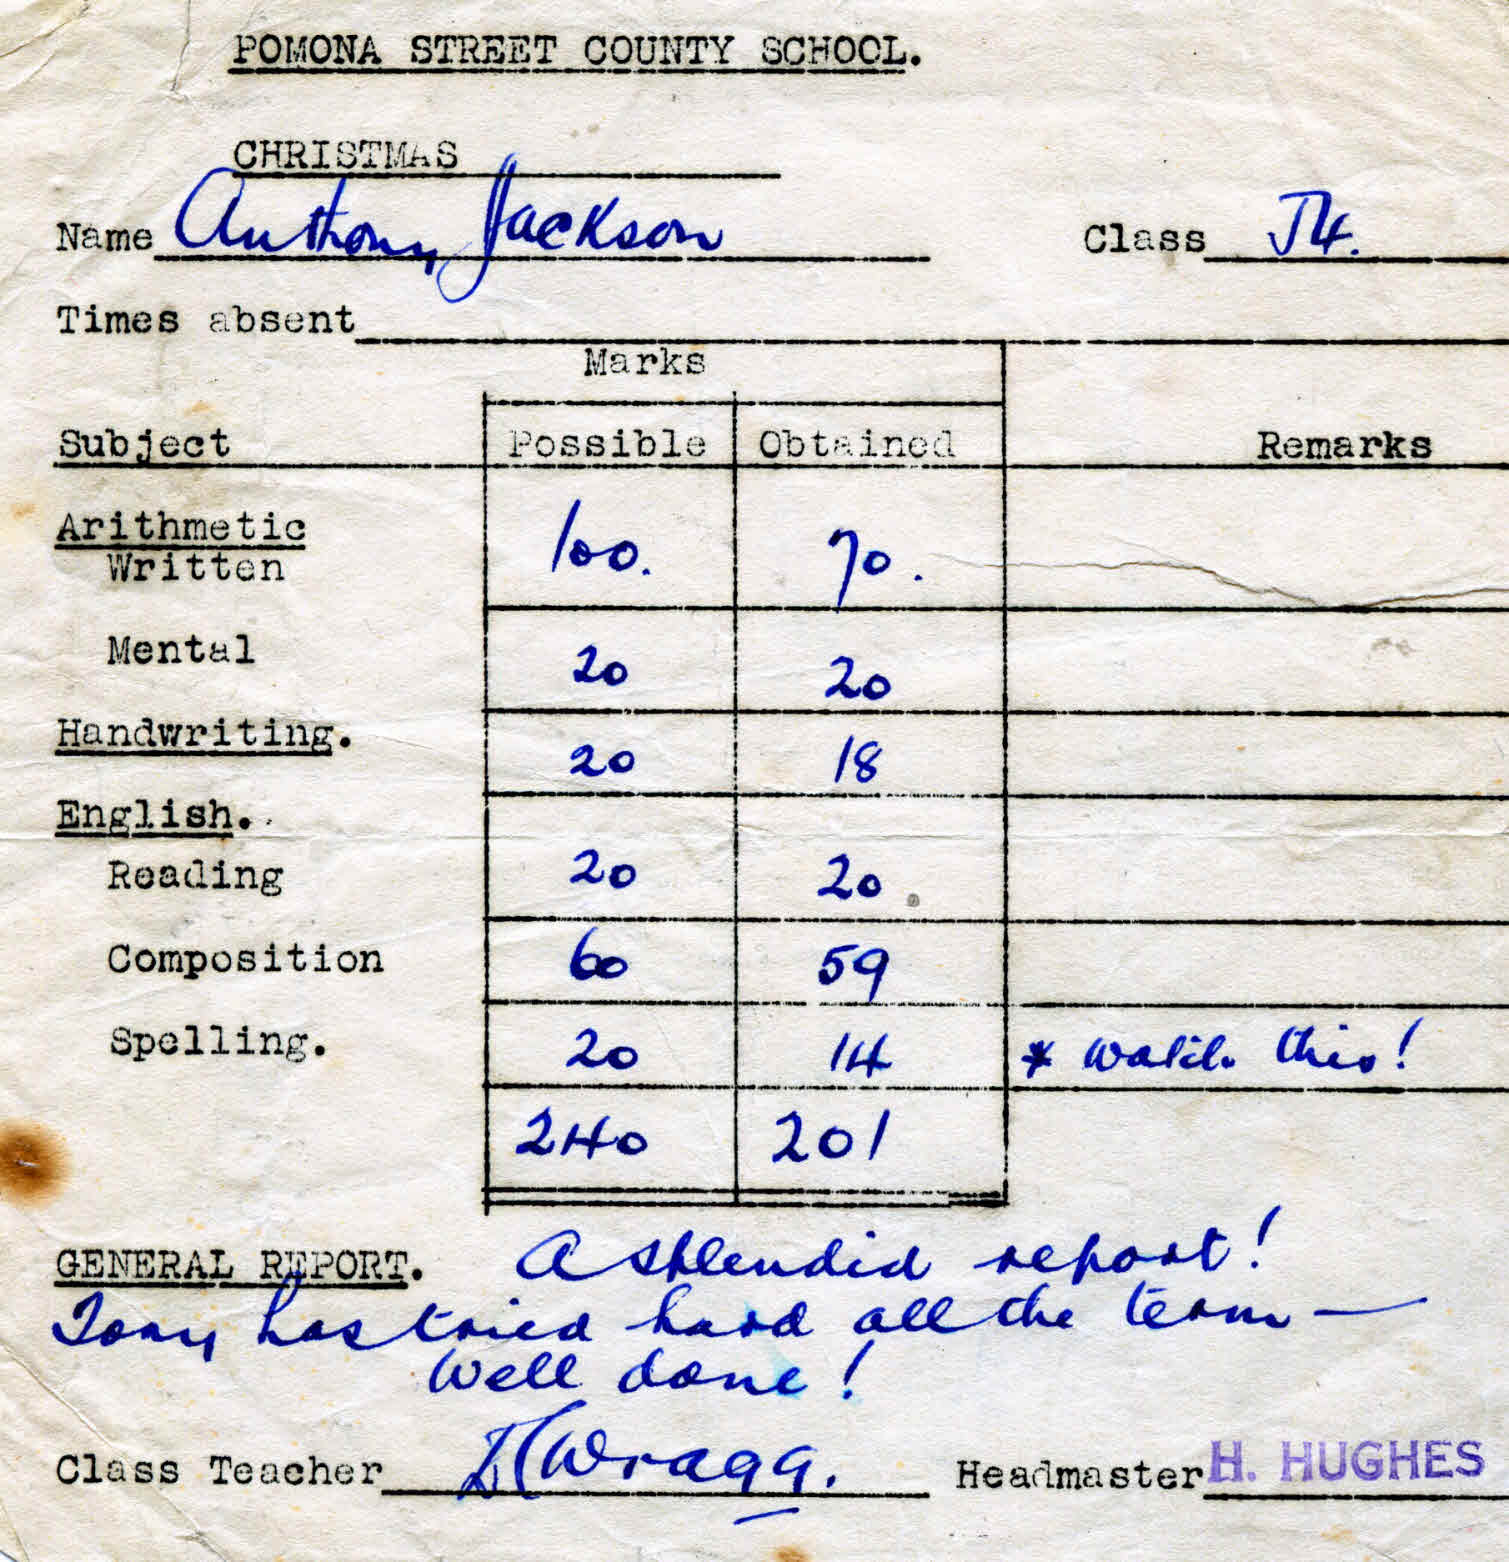 POMONA STREET COUNTY SCHOOL.
CHRISTMAS
Name Anthony Jackson Class J4.
Times absent
Marks
Subject Possible Obtained Remarks
Arithmetic
Written 100. 70.
Mental 20 20
Handwriting. 20 18
English.
Reading 20 20.
Composition 60 59
Spelling. 20 14 * watch this!
240 201
GENERAL REPORT. A splendid report!
Tony has tried hard all the term —
Well done!
Class Teacher Wragg. Headmaster H. HUGHES